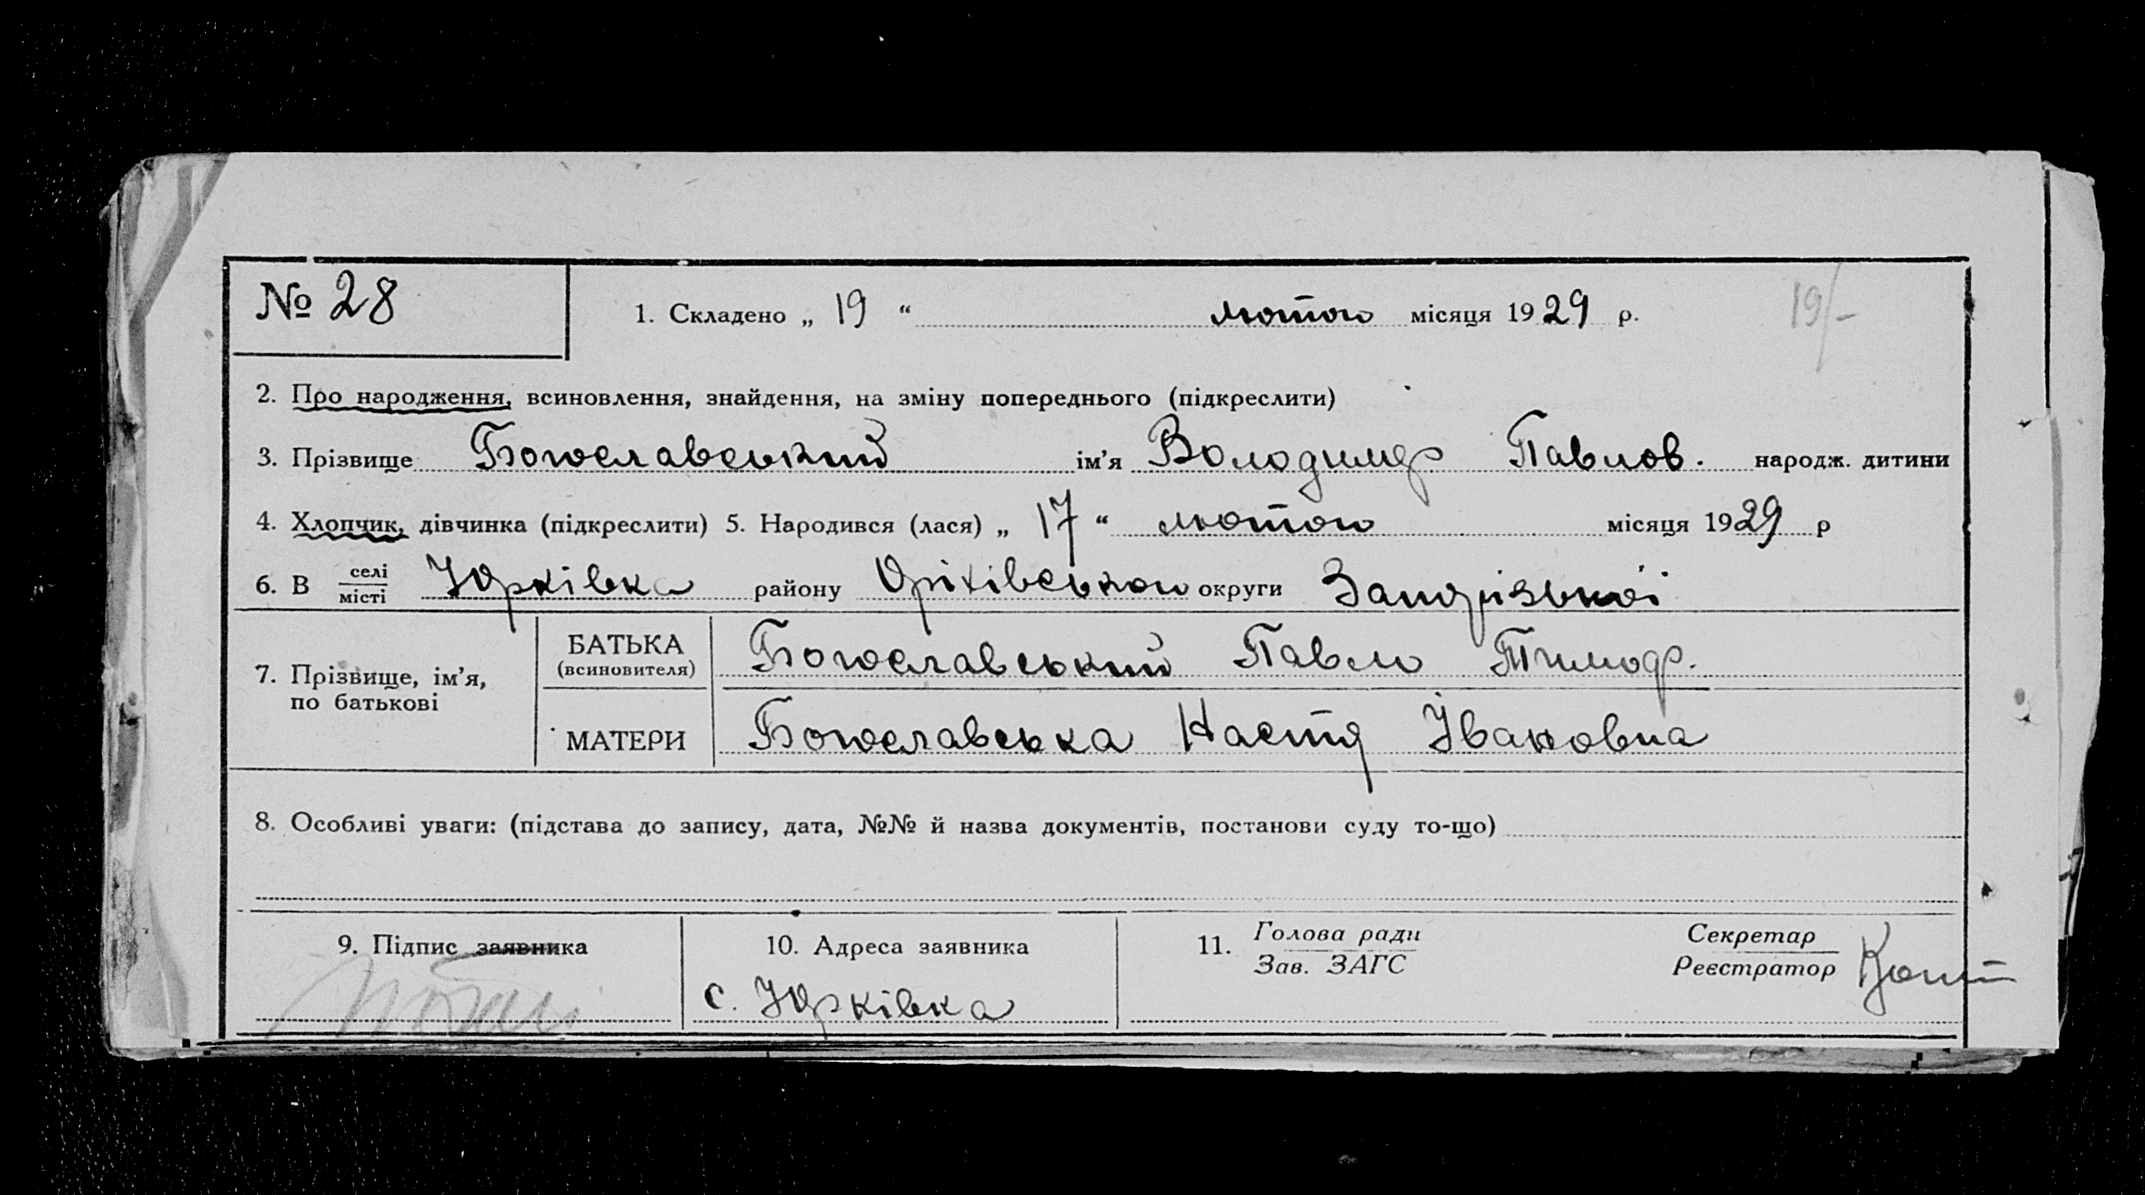 № 28
1. Складено „ 19 “ лютого місяця 1929 р. 19/-
2. Про народження, всиновлення, знайдення, на зміну попереднього (підкреслити)
3. Прізвище Богославський ім’я Володимир Павлов. народж. дитини
4. Хлопчик, дівчинка (підкреслити) 5. Народився (лася) „ 17 “ лютого місяця 1929 р
6. В селі місті Юрківка району Оріхівського округи Запорізької
7. Прізвище, ім’я, по батькові
БАТЬКА (всиновителя) Богославський Павло Тимоф.
МАТЕРИ Богославська Настя Івановна
8. Особливі уваги: (підстава до запису, дата, №№ й назва документів, постанови суду то-що)
9. Підпис заявника
10. Адреса заявника
с. Юрківка
11. Голова ради
Зав. ЗАГС
Секретар
Реєстратор